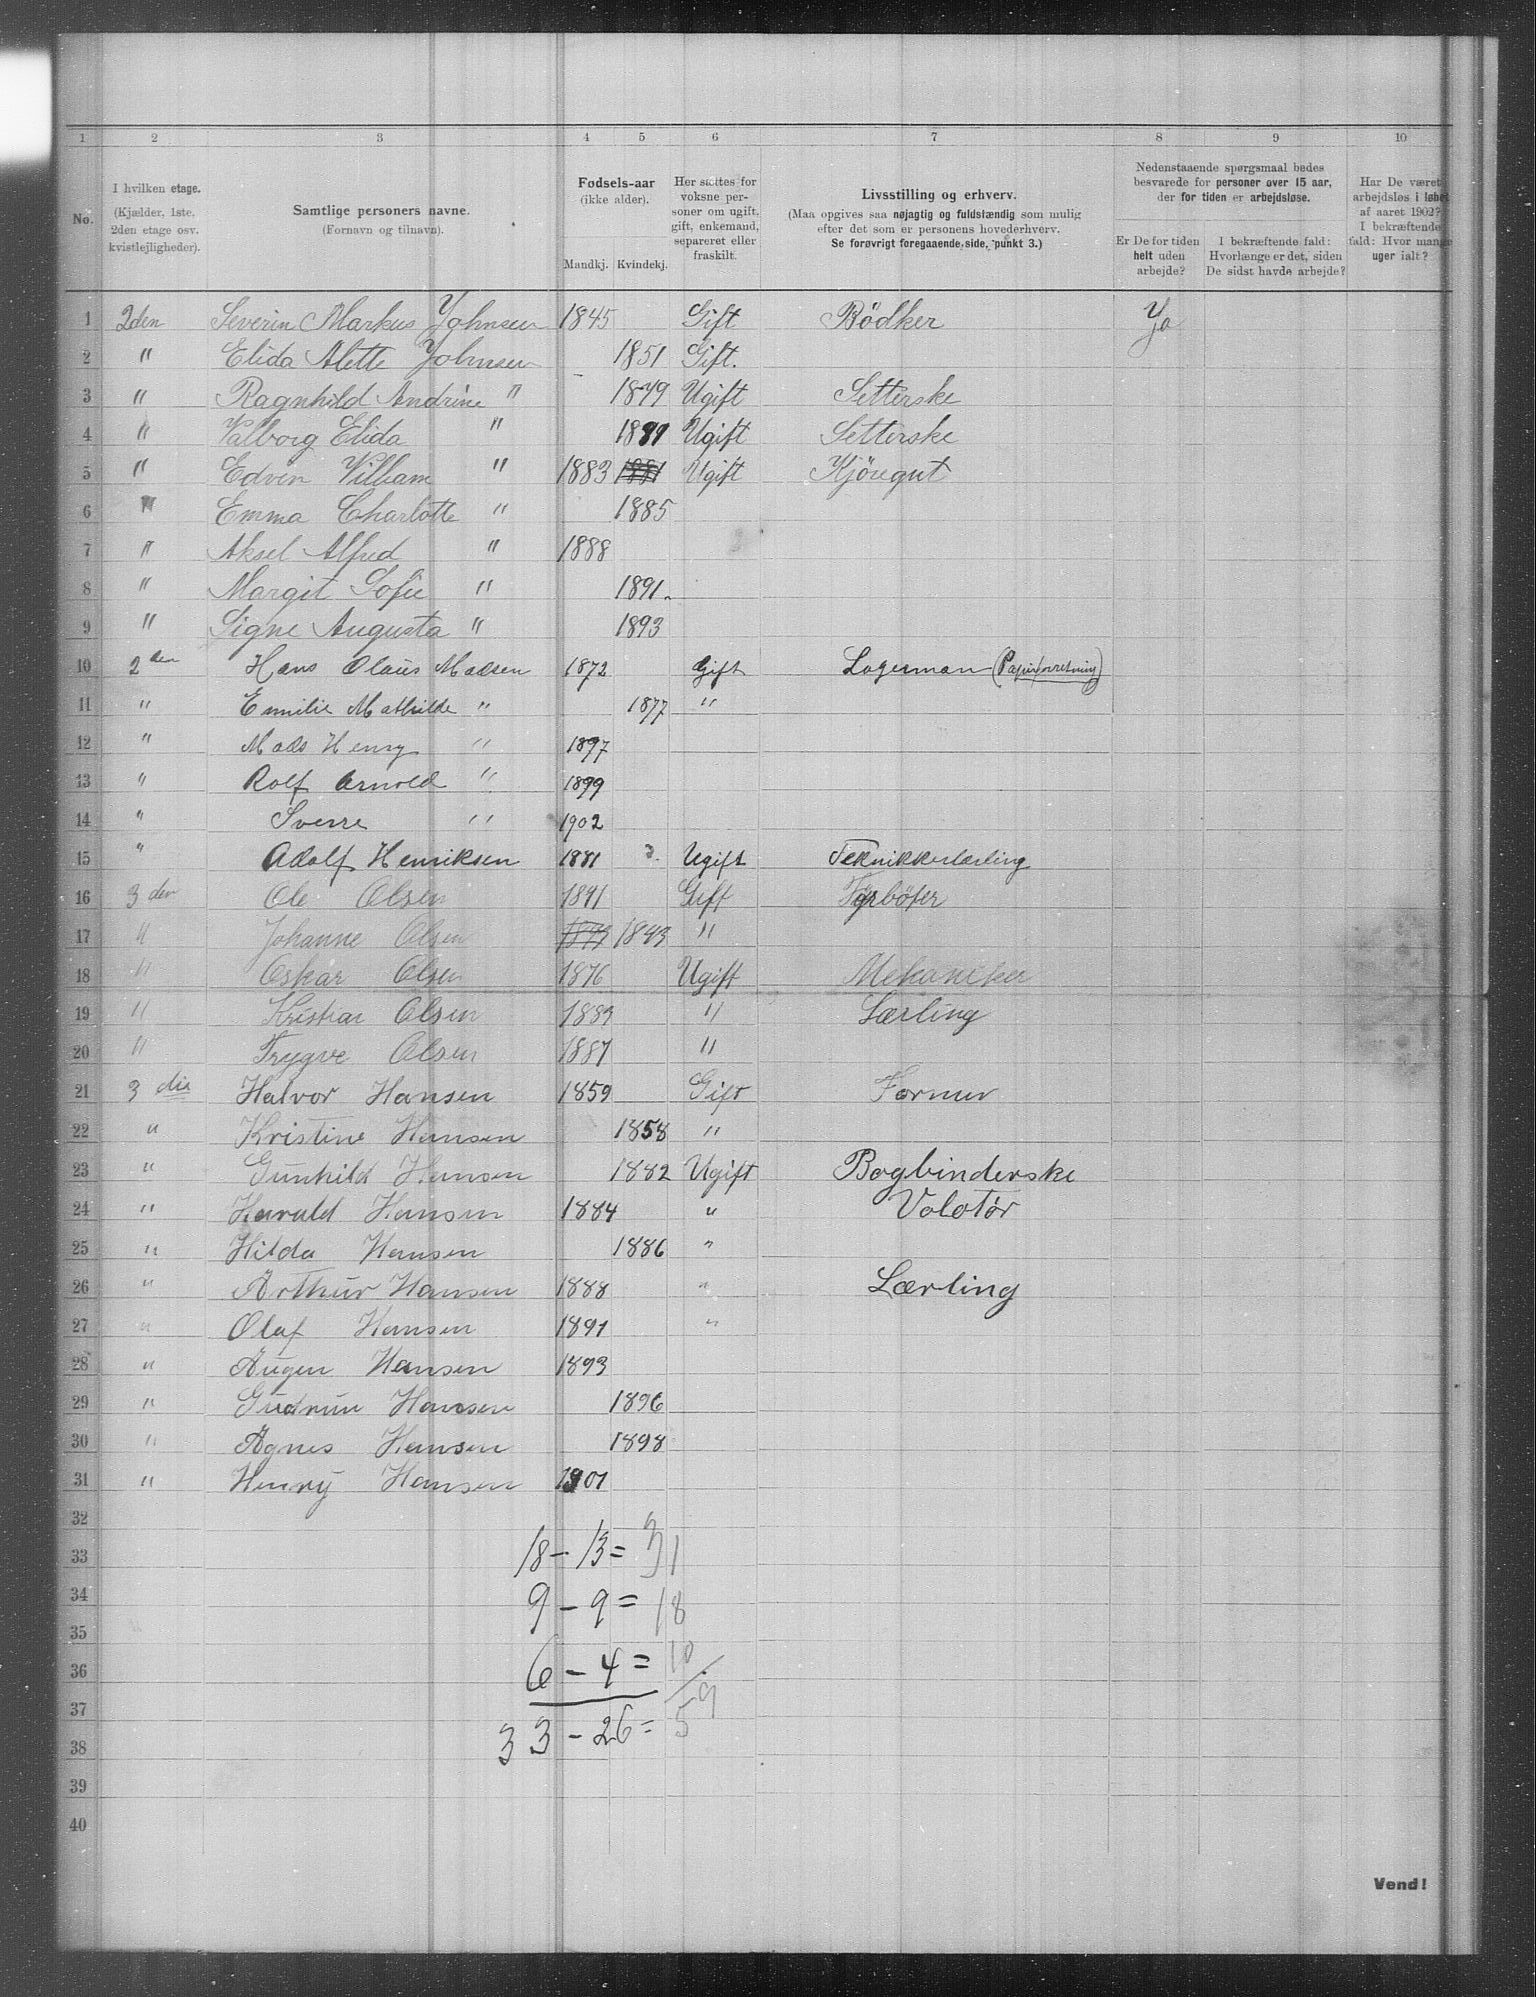 1 2 3 4 5 6 7 8 9 10
No.
I hvilken etage.
(Kjælder, 1ste, 2den etage osv. kvistlejligheder).
Samtlige personers navne.
(Fornavn og tilnavn).
Fødsels-aar
(ikke alder).
Mandkj. Kvindekj.
Her sættes for voksne personer om ugift, gift, enkemand, separeret eller fraskilt.
Livsstilling og erhverv.
(Maa opgives saa nøjagtig og fuldstændig som mulig efter det som er personens hovederhverv.
Se forøvrigt foregaaende side, punkt 3.)
Nedenstaaende spørgsmaal bedes besvarede for personer over 15 aar, der for tiden er arbejdsløse.
Er De for tiden helt uden arbejde?
I bekræftende fald: Hvorlænge er det, siden De sidst havde arbejde?
Har De været arbejdsløs i løbet af aaret 1902? I bekræftende fald: Hvor mange uger ialt?
1 2den Severin Markus Johnsen 1845 Gift Bödker Ja
2 " Elida Alette Johnsen 1851 Gift.
3 " Ragnhild Andrine " 1879 Ugift Setterske
4 " Valborg Elida " 1881 Ugift Setterske
5 " Edvin Vilham " 1883 1881 Ugift Kjöregut
6 " Emma Charlotte " 1885
7 " Aksel Alfred " 1888
8 " Margit Sofie " 1891.
9 " Signe Augusta " 1893
10 2den Hans Olaus Madsen 1872 Gift Lagerman (Papirforretning)
11 " Emilie Mathilde " 1877 "
12 " Mads Henry " 1897
13 " Rolf Arnold " 1899
14 " Sverre " 1902
15 " Adolf Henriksen 1881 Ugift Teknikkerlærling
16 3den Ole Olsen 1841 Gift Fyrbøter
17 " Johanne Olsen 1843 "
18 " Oskar Olsen 1876 Ugift Mekaniker
19 " Kristian Olsen 1883 " Lærling
20 " Trygve Olsen 1887 "
21 3die Halvor Hansen 1859 Gift Former
22 " Kristine Hansen 1858 "
23 " Gunhild Hansen 1882 Ugift Bogbinderske
24 " Harald Hansen 1884 " Volotør
25 " Hilda Hansen 1886 "
26 " Arthur Hansen 1888 " Lærling
27 " Olaf Hansen 1891 "
28 " Augen Hansen 1893
29 " Gudrun Hansen 1896
30 " Agnes Hansen 1898
31 " Henry Hansen 1901
32
33 18 – 13 = 31
34 9 – 9 = 18
35
36 6 – 4 = 10
37
38 33 – 26 = 59
39
40
Vend!